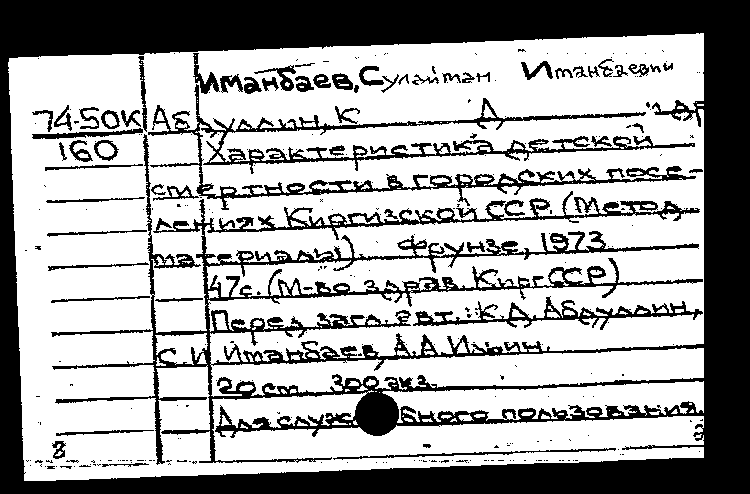 Иманбаев, Сулайман Иманбаевич
74-50К Абдуллин, К Д "1 др
160 Характеристика детской
смертности в городских посе-
лениях Киргизской ССР. (Метод
материалы). Фрунзе, 1973
47с. (М-во здрав. Кирг ССР)
Перед загл. авт.: К.Д. Абдуллин,
С.И Иманбаев, А.А. Ильин.
20 см 300 экз.
Для служебного пользования.
8